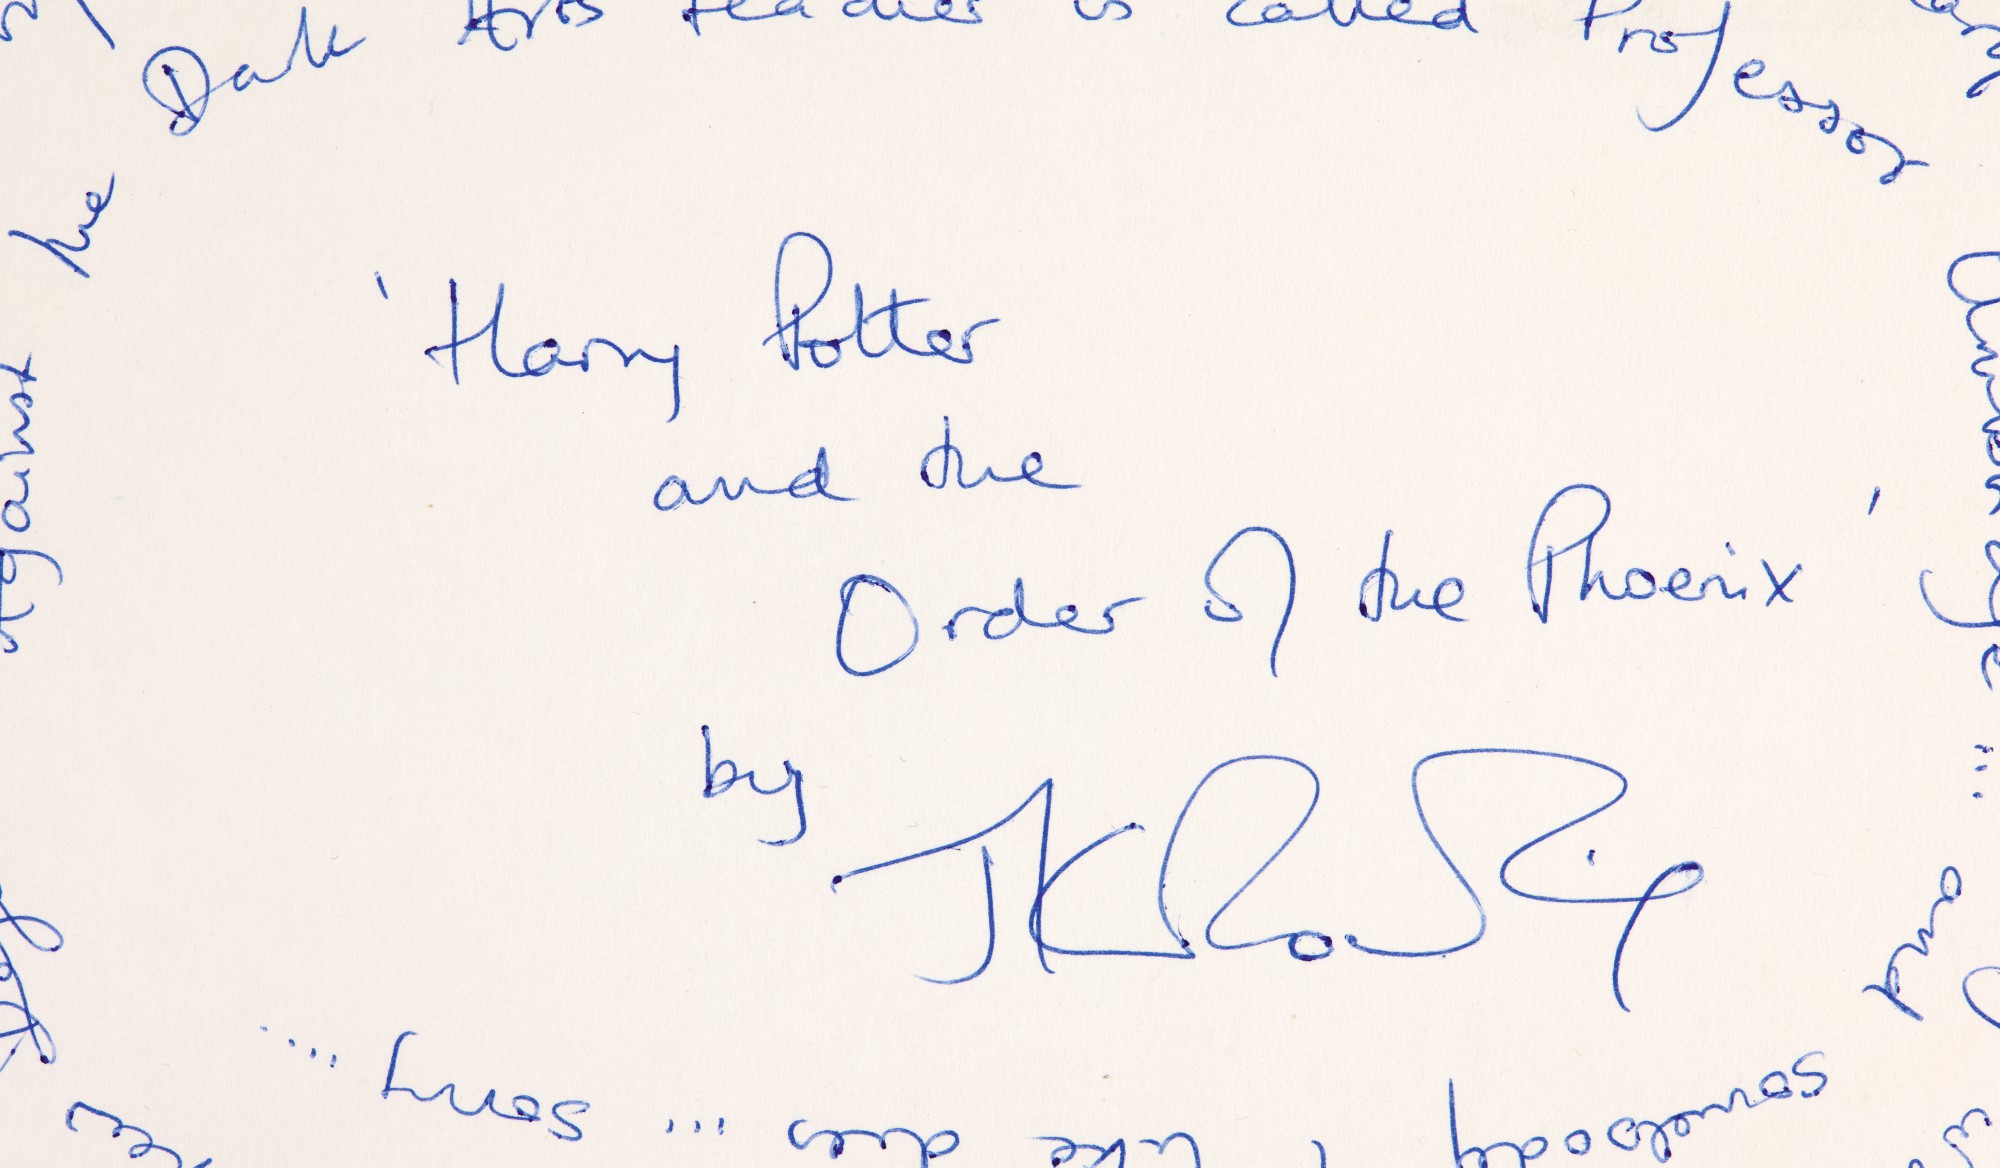 Dark Arts teacher is called Professor
Against the
'Harry Potter
and the
Order of the Phoenix'
by
JK Rowling
Umbridge ...
and
somebody I like dies ... sorry ...